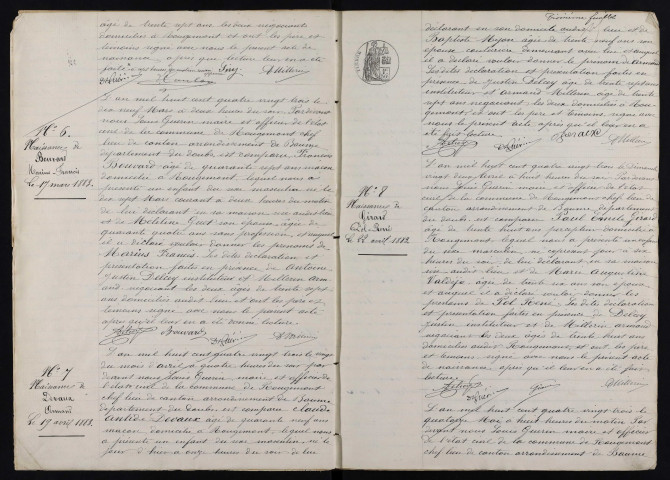 âgé de trente sept ans les deux négociants
domiciliés à Rougemont et ont les père et
témoins signé avec nous le présent acte de
naissance après que lecture leur en a été
faite
N° 6.
Naissance de
Bouvard
Marius Francis
Le 17 mars 1883.
L'an mil huit cent quatre vingt trois le
dix neuf Mars à deux heures du soir Pardevant
nous Louis Guerin maire et officier de l'état
civil de la commune de Rougemont chef
lieu de canton arrondissement de Baume
département du doubs est comparu Francois
Bouvard âgé de quarante sept ans
domicilié à Rougemont lequel nous a
présenté un enfant du sexe masculin né le
dix sept Mars courant à deux heures du matin
de lui déclarant en sa maison sise
et de son épouse âgée de
quarante quatre ans sans profession et auquel
il a déclaré vouloir donner les prénoms de
Marius Francis. Les dites déclaration et
présentation faites en présence de Antoine
Justin Delley instituteur et Millerin
Armand négociant les deux âgés de trente sept
ans domiciliés audit lieu et ont les père et
témoins signé avec nous le présent acte
après qu'il leur en a été donné lecture.
Bouvard
N° 7
Naissance de
Devaux
Armand
Le 19 avril 1883.
L'an mil huit cent quatre vingt trois le vingt
du mois d'avril à quatre heures du soir par
devant nous Louis Guerin maire et officier de
l'état civil de la commune de Rougemont
chef lieu de canton arrondissement de Baume
département du doubs est comparu Claude
Devaux âgé de quarante neuf ans
maçon domicilié à Rougemont, lequel nous
a présenté un enfant du sexe masculin né le
jour d'hier à onze heures du soir de lui
déclarant en son domicile audit lieu et de
âgée de trente neuf ans son
épouse couturière demeurant avec lui et auquel
il a déclaré vouloir donner le prénom de Armand
Les dites déclaration et présentation faites en
présence de Justin Delley âgé de trente sept ans
instituteur et Armand Millerin âgé de trente
sept ans négociant les deux domiciliés à Rougemont
et ont les père et témoins signé avec
nous le présent acte après que il leur en a
été fait lecture.
N° 8
Naissance de
Girard
Pol René
Le 22 avril 1883.
L'an mil huit cent quatre vingt trois le
vingt deux Avril à huit heures du matin Par
devant Louis Guerin maire et officier de l'état
civil de la commune de Rougemont chef lieu de
canton arrondissement de Baume département
du doubs est comparu Paul Emile Girard
âgé de trente huit ans percepteur domicilié à
Rougemont lequel nous a présenté un enfant
du sexe masculin né
heures du soir de lui déclarant et sa maison
sise audit lieu et de Marie Augustine
âgée de trente un ans son épouse
et auquel il a déclaré vouloir donner les
prénoms de Pol René. Les dites déclaration
et présentation faites en présence de Delley
Justin instituteur et de Millerin Armand
négociant les deux âgés de trente huit ans
domiciliés audit Rougemont et ont les père
et témoins signé avec nous le présent acte
de naissance après qu'il leur en a été fait
lecture.
L'an mil huit cent quatre vingt trois le
quatorze Mai à huit heures du matin Par
devant nous Louis Guerin maire et officier
de l'état civil de la commune de Rougemont
chef lieu de canton arrondissement de Baume